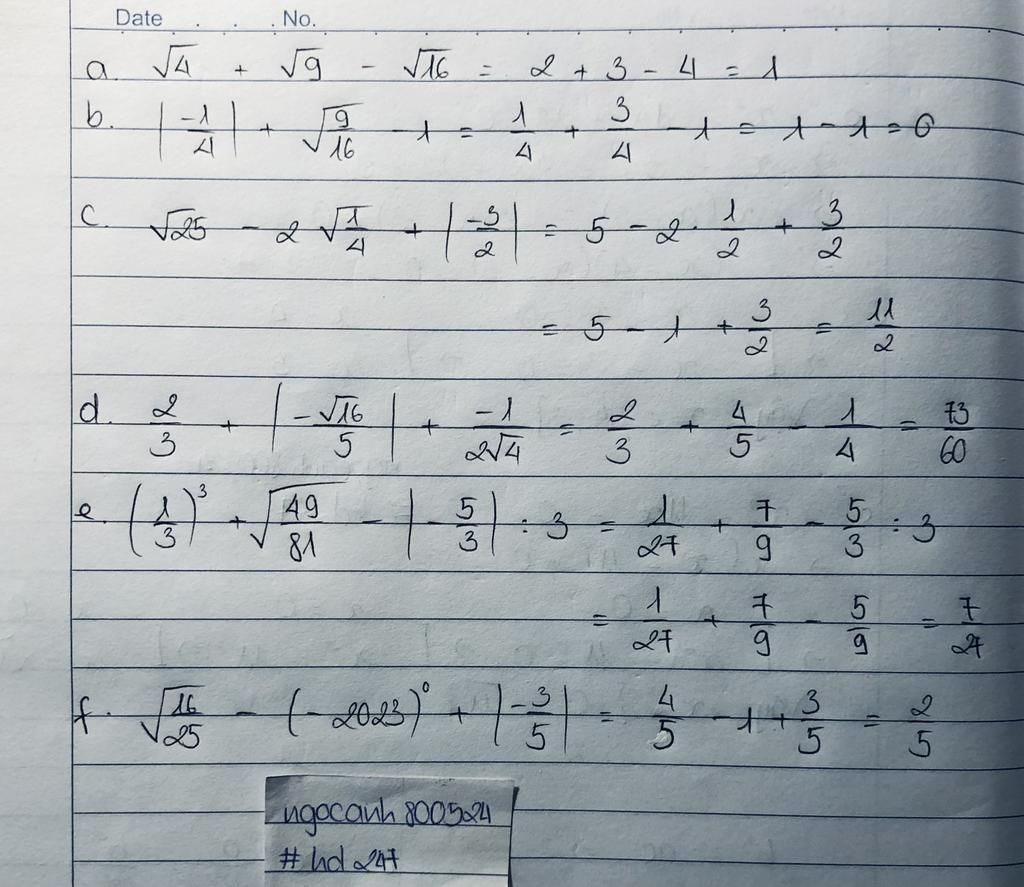 Date . . . . No.
a. √4 + √9 - √16 = 2 + 3 - 4 = 1
b. |-1/4| + √(9/16) - 1 = 1/4 + 3/4 - 1 = 1 - 1 = 0
c. √25 - 2 √(1/4) + |-3/2| = 5 - 2 · 1/2 + 3/2
= 5 - 1 + 3/2 = 11/2
d. 2/3 + |-√16/5| + -1/(2√4) = 2/3 + 4/5 - 1/4 = 73/60
e. (1/3)³ + √(49/81) - |-5/3| : 3 = 1/27 + 7/9 - 5/3 : 3
= 1/27 + 7/9 - 5/9 = 7/27
f. √(16/25) - (-2023)⁰ + |-3/5| = 4/5 - 1 + 3/5 = 2/5
ngocanh800524
# hd247